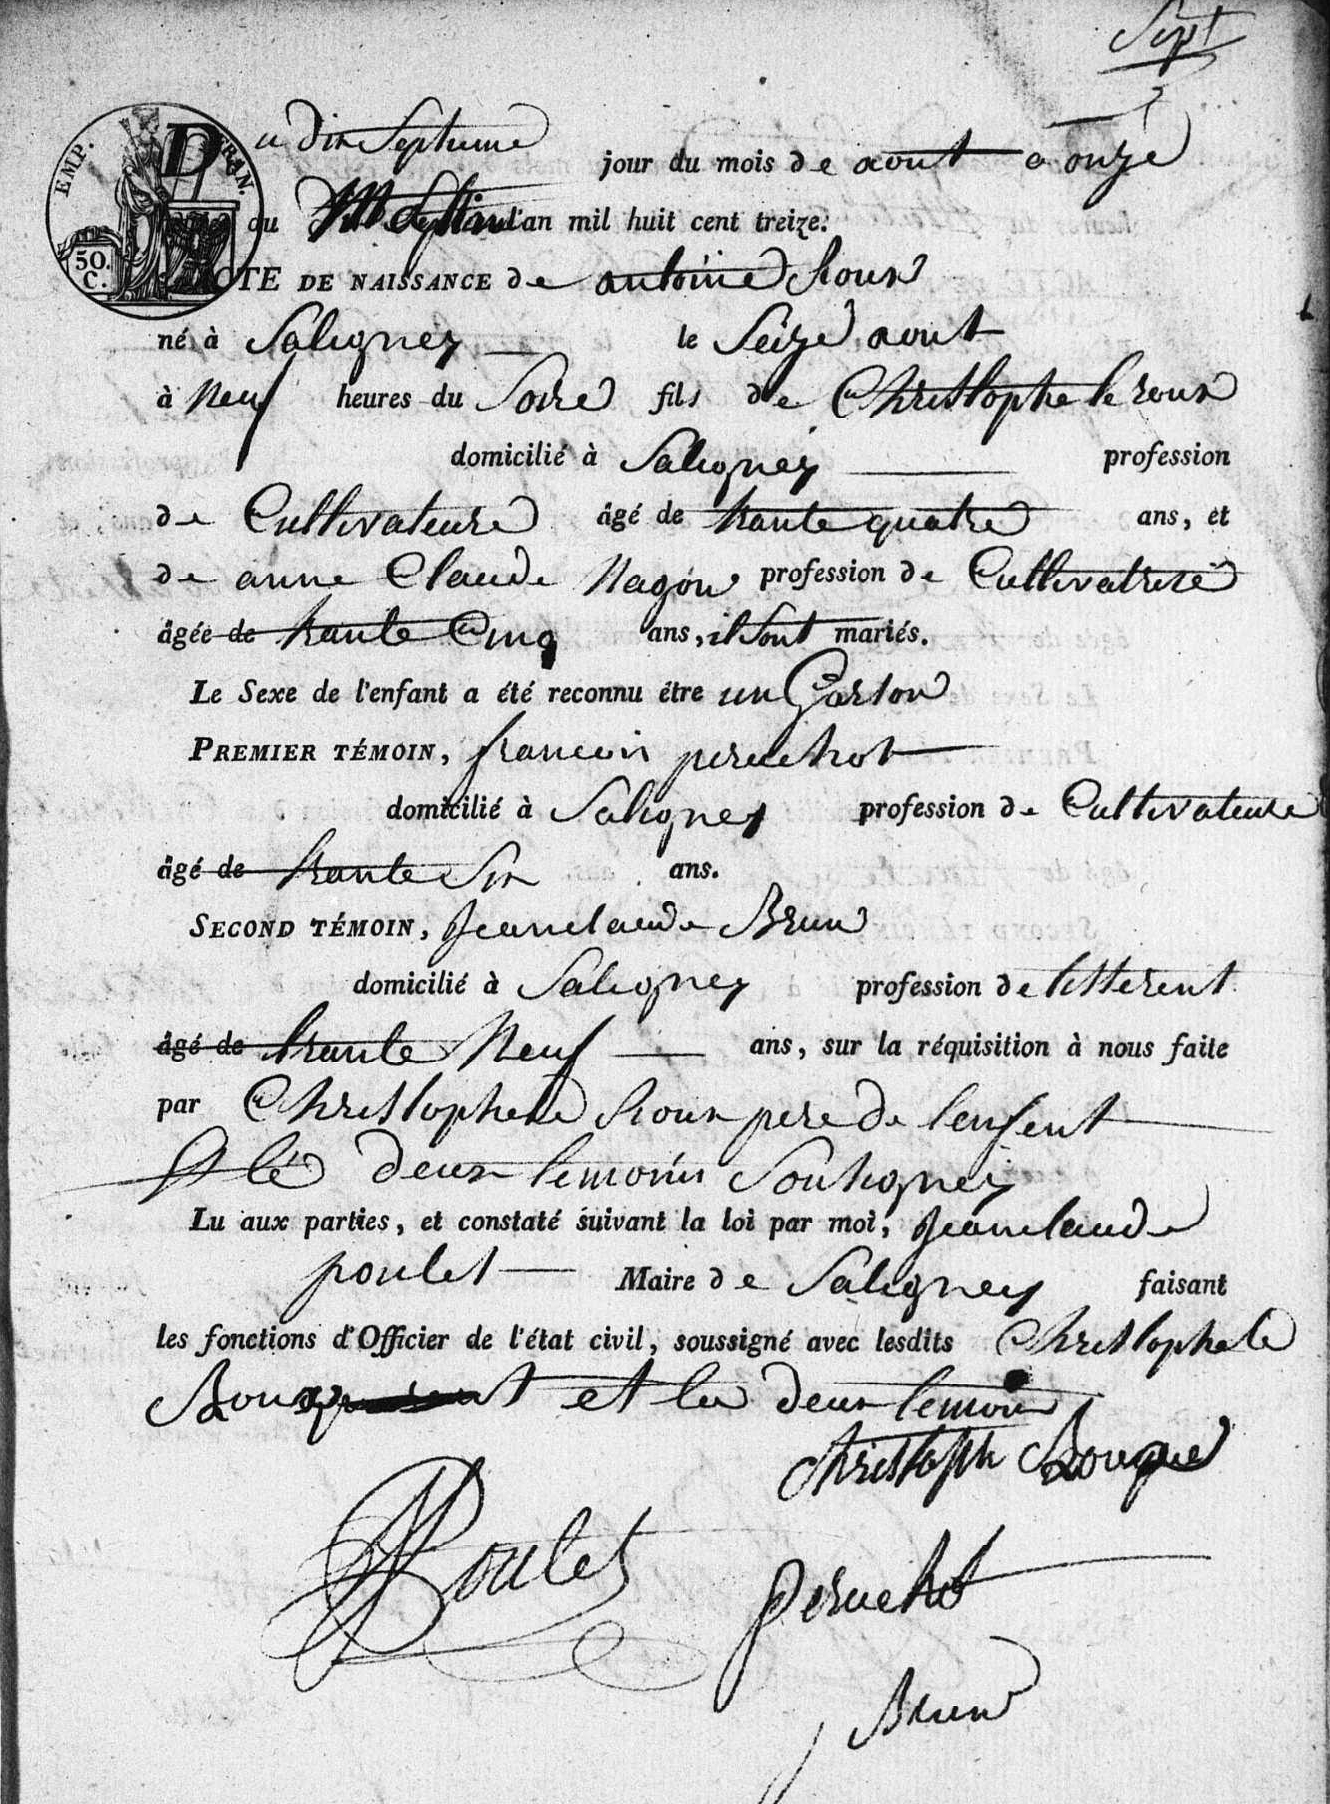 Sept
EMP. FRAN.
50. C.
Du dix Septieme jour du mois de aout a onze
du l'an mil huit cent treize.
ACTE DE NAISSANCE de antoine Roux
né à Saligney le Seize aout
à Neuf heures du Soire fils de Christophe le roux
domicilié à Saligney profession
de Cultivateure âgé de trante quatre ans, et
de anne Claude Nagon profession de Cultivatrice
âgée de trante Cinq ans, il Sont mariés.
Le Sexe de l'enfant a été reconnu être un Garson
PREMIER TÉMOIN, francois peruchot
domicilié à Saligney profession de Cultivateure
âgé de trante Six ans.
SECOND TÉMOIN, Jeanclaude Brun
domicilié à Saligney profession de
âgé de trante Neuf ans, sur la réquisition à nous faite
par Christophe le Roux pere de lenfent
et lé deux temoins Soulignez
Lu aux parties, et constaté suivant la loi par moi, Jeanclaude
poulet Maire de Saligney faisant
les fonctions d'Officier de l'état civil, soussigné avec lesdits Christophe le
Roux et les deux temoins
Christoph Rouque
Poulet
peruchot
Brun